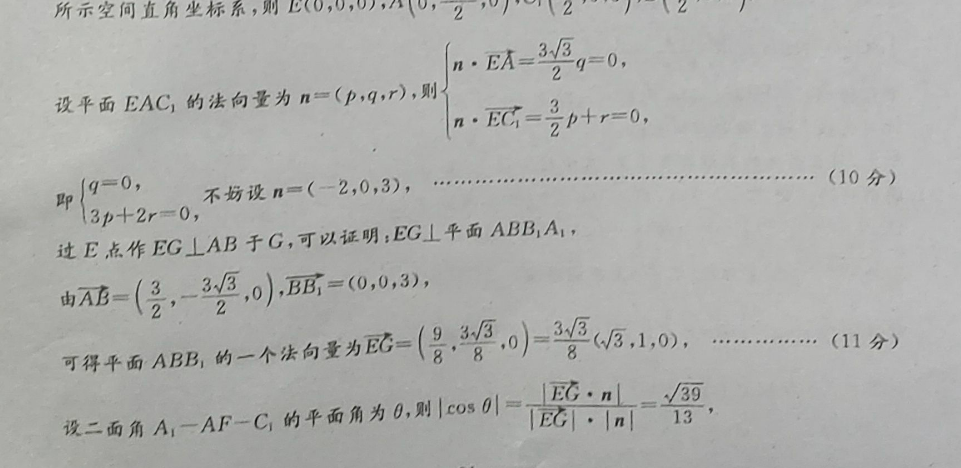 所示空间直角坐标系,则E(0,0,0),A(0,
设平面 EAC₁ 的法向量为 n=(p,q,r),则{n·EA→=3√3/2 q=0,
n·EC₁→=3/2 p+r=0,
即{q=0,
3p+2r=0, 不妨设 n=(-2,0,3), ……………………………………………… (10 分)
过 E 点作 EG⊥AB 于 G,可以证明:EG⊥平面 ABB₁A₁,
由AB→=(3/2,-3√3/2,0),BB₁→=(0,0,3),
可得平面 ABB₁ 的一个法向量为EG→=(9/8,3√3/8,0)=3√3/8(√3,1,0), …………… (11 分)
设二面角 A₁-AF-C₁ 的平面角为 θ,则|cos θ|=|EG→·n|/|EG→|·|n|=√39/13,